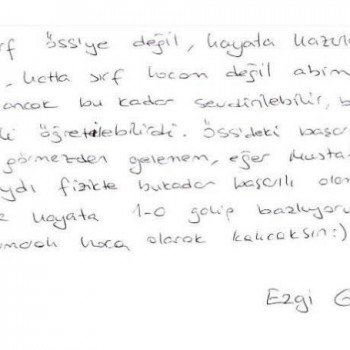 rf össiye değil, hayata hazırl
, hatta sırf hocan değil abim
ancak bu kadar sevdirilebilir, b
li öğretilebilirdi. Össideki başar
görmezden gelemem, eğer Musta
ydı fizikte bukadar başarılı olam
e hayata 1-0 galip başlıyoru
hoca olarak kalıcaksın:)
Ezgi G